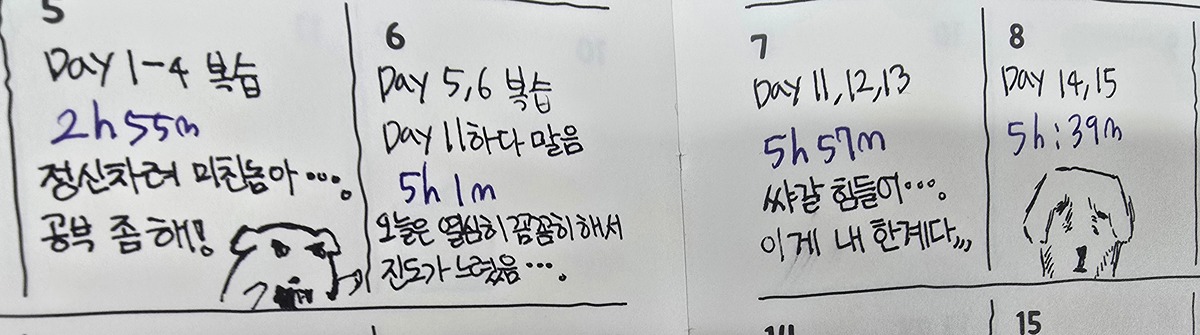 5
Day 1-4 복습
2h 55m
정신차려 미친놈아....
공부 좀 해!
6
Day 5,6 복습
Day 11하다 말음
5h 1m
오늘은 열심히 꼼꼼히 해서
진도가 느렸음....
7
Day 11,12,13
5h 57m
쌰갈 힘들어....
이게 내 한계다,,,
8
Day 14,15
5h:39m
15